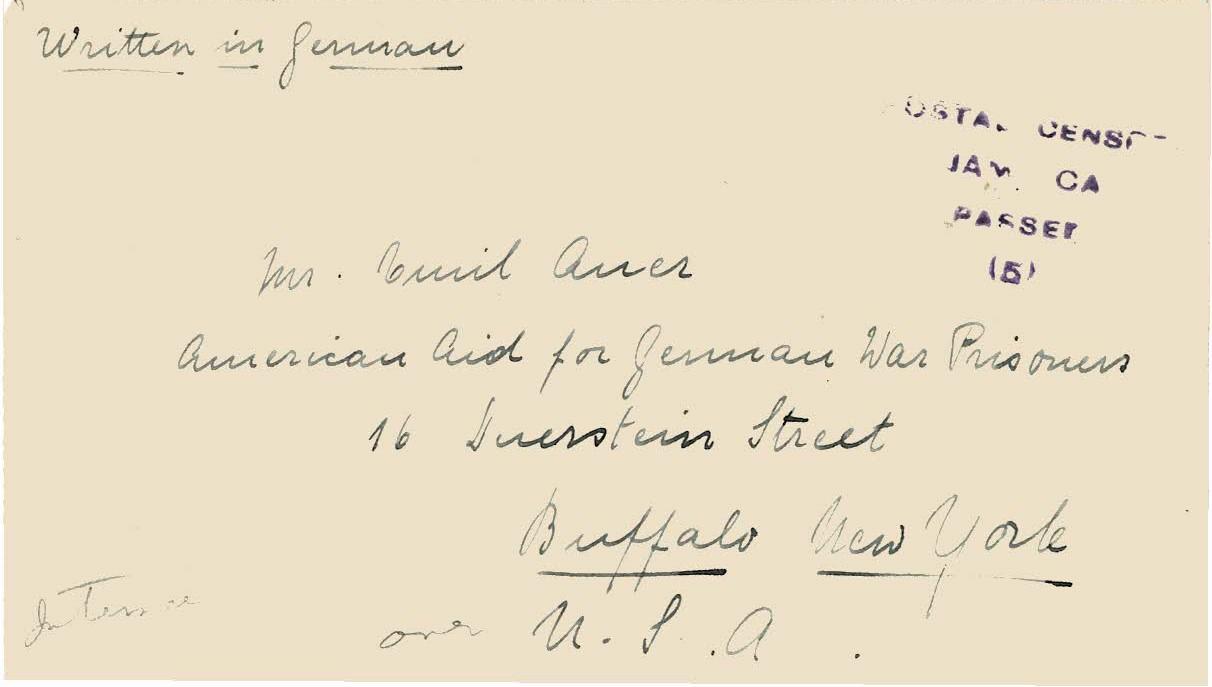 Written in German
POSTAL CENSOR
JAMAICA
PASSED
(5)
Mr. Emil Auer
American Aid for German War Prisoners
16 Duerstein Street
Buffalo New York
over U.S.A.
Internee